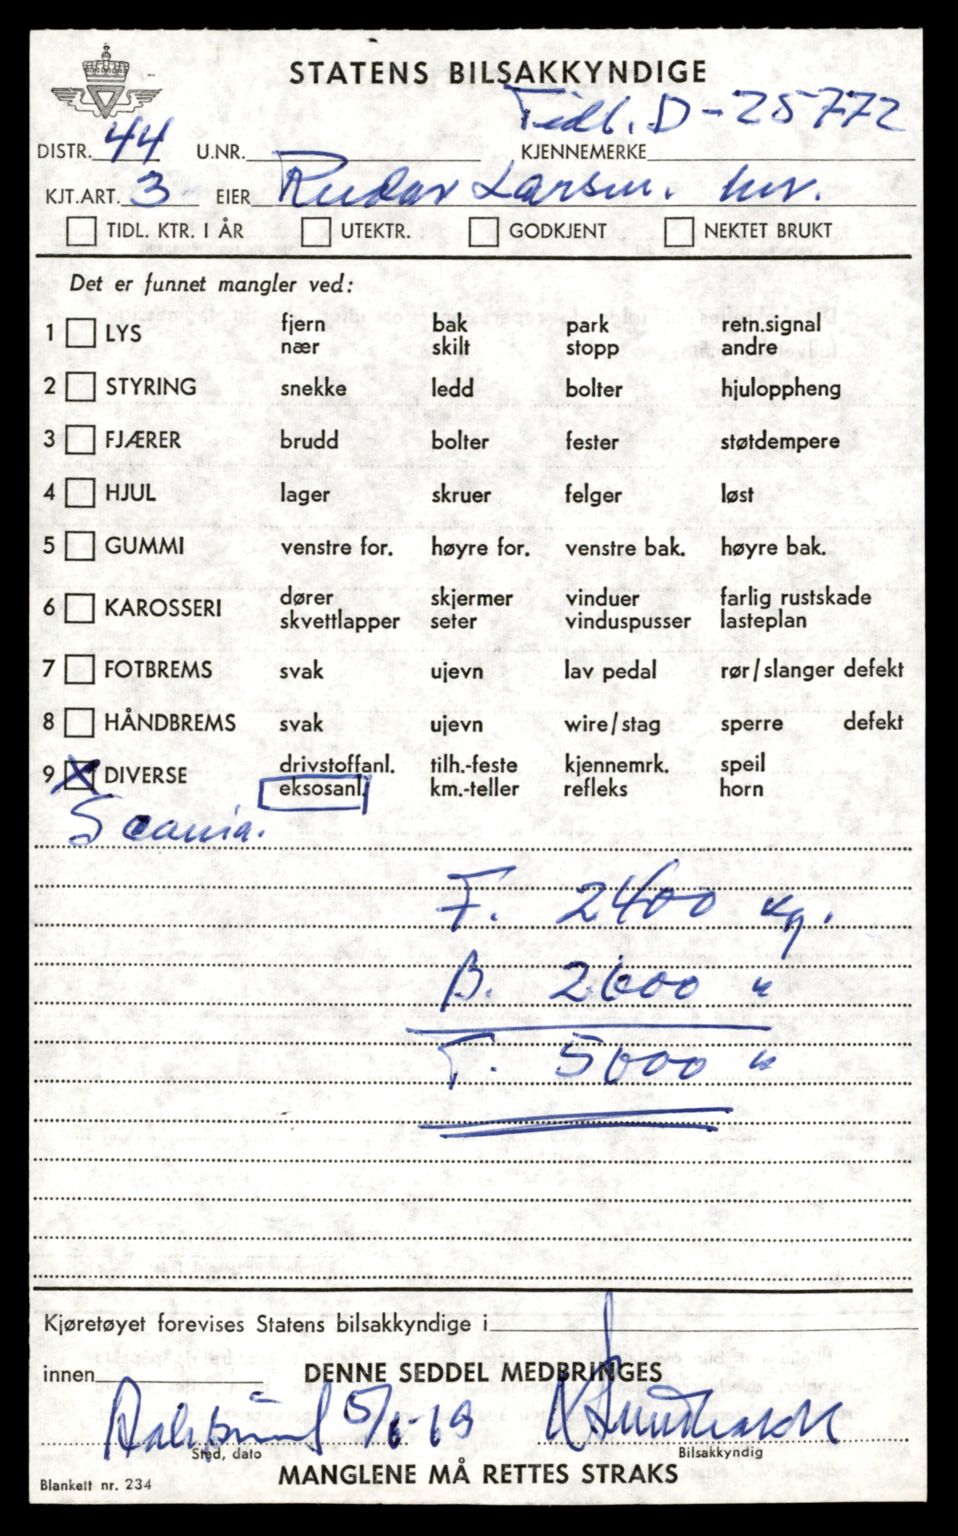 STATENS BILSAKKYNDIGE
Tidl. D-25772
DISTR. 44 U.NR. KJENNEMERKE
KJT.ART. 3 EIER Reidar Larsen. her.
TIDL. KTR. I ÅR UTEKTR. GODKJENT NEKTET BRUKT
Det er funnet mangler ved:
1 LYS fjern bak park retn.signal
nær skilt stopp andre
2 STYRING snekke ledd bolter hjuloppheng
3 FJÆRER brudd bolter fester støtdempere
4 HJUL lager skruer felger løst
5 GUMMI venstre for. høyre for. venstre bak. høyre bak.
6 KAROSSERI dører skjermer vinduer farlig rustskade
skvettlapper seter vinduspusser lasteplan
7 FOTBREMS svak ujevn lav pedal rør/slanger defekt
8 HÅNDBREMS svak ujevn wire/stag sperre defekt
9 X DIVERSE drivstoffanl. tilh.-feste kjennemrk. speil
eksosanl. km.-teller refleks horn
Scania.
F. 2400 kg.
B. 2600 "
T. 5000 "
Kjøretøyet forevises Statens bilsakkyndige i
innen DENNE SEDDEL MEDBRINGES
5/6-69
Sted, dato Bilsakkyndig
MANGLENE MÅ RETTES STRAKS
Blankett nr. 234